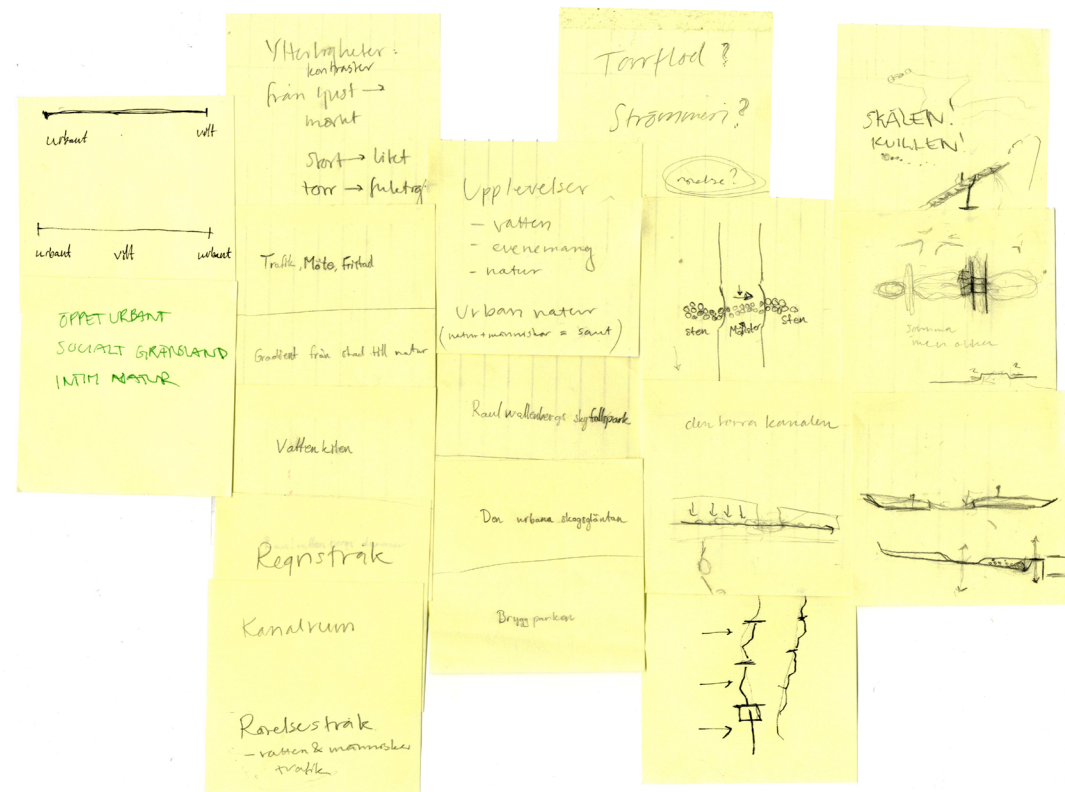 urbant
vilt
urbant
vilt
urbant
ÖPPET URBANT
SOCIALT GRÄNSLAND
INTIM NATUR
Ytterligheter:
kontraster
från ljust →
mörkt
stort → litet
torr →
Trafik, Möte, Fristad
Gradient från stad till natur
Vattenkilen
Regnstråk
Kanalrum
Rörelsestråk
- vatten & människor
trafik
Upplevelser
- vatten
- evenemang
- natur
Urban natur
(natur + människor = sant)
Raul wallenbergs skyfallspark
Den urbana skogsgläntan
Bryggparken
Torrflod?
Strömmen?
rörelse?
sten
sten
den torra kanalen
SKÅLEN!
KULLEN!
samma
men olika